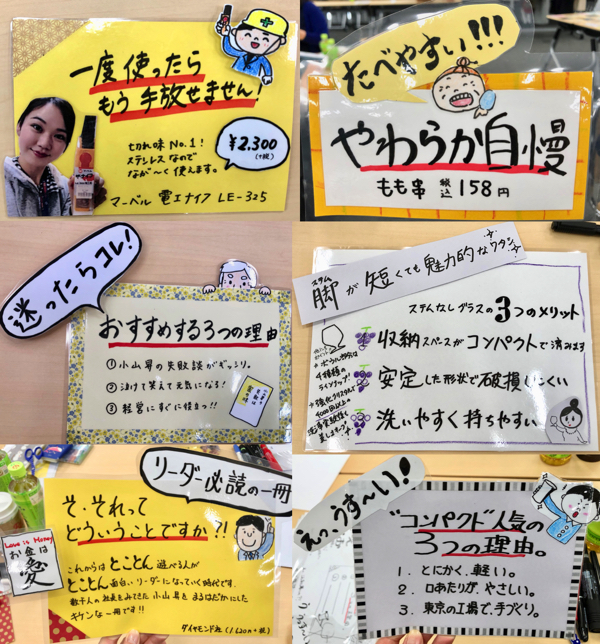 一度使ったら
もう手放せません!
切れ味No.1!
ステンレスなので
なが〜く使えます。
¥2.300
(+税)
マーベル 電工ナイフ LE-325
たべやすい!!!
やわらか自慢
もも串 税込158円
迷ったらコレ!
おすすめする3つの理由
① 小山昇の失敗談がギッシリ。
② 泣けて笑えて元気になる!
③ 経営にすぐに役立つ!!
ステム
脚が短くても魅力的なワタシ
ステムなしグラスの3つのメリット
収納スペースがコンパクトで済みます
安定した形状で破損しにくい
洗いやすく持ちやすい
4種類の
ラインナップ
リーダー必読の一冊
そ・それって
どういうことですか?!
Love is Money
お金は
愛
これからはとことん遊べる人が
とことん面白いリーダーになっていく時代です。
数千人の社長をみてきた小山昇をまるはだかにした
キケンな一冊です!!
ダイヤモンド社 (1,620円+税)
えっ、うす〜い!
"コンパクト"人気の
3つの理由。
1. とにかく、軽い。
2. 口あたりが、やさしい。
3. 東京の工場で、手づくり。